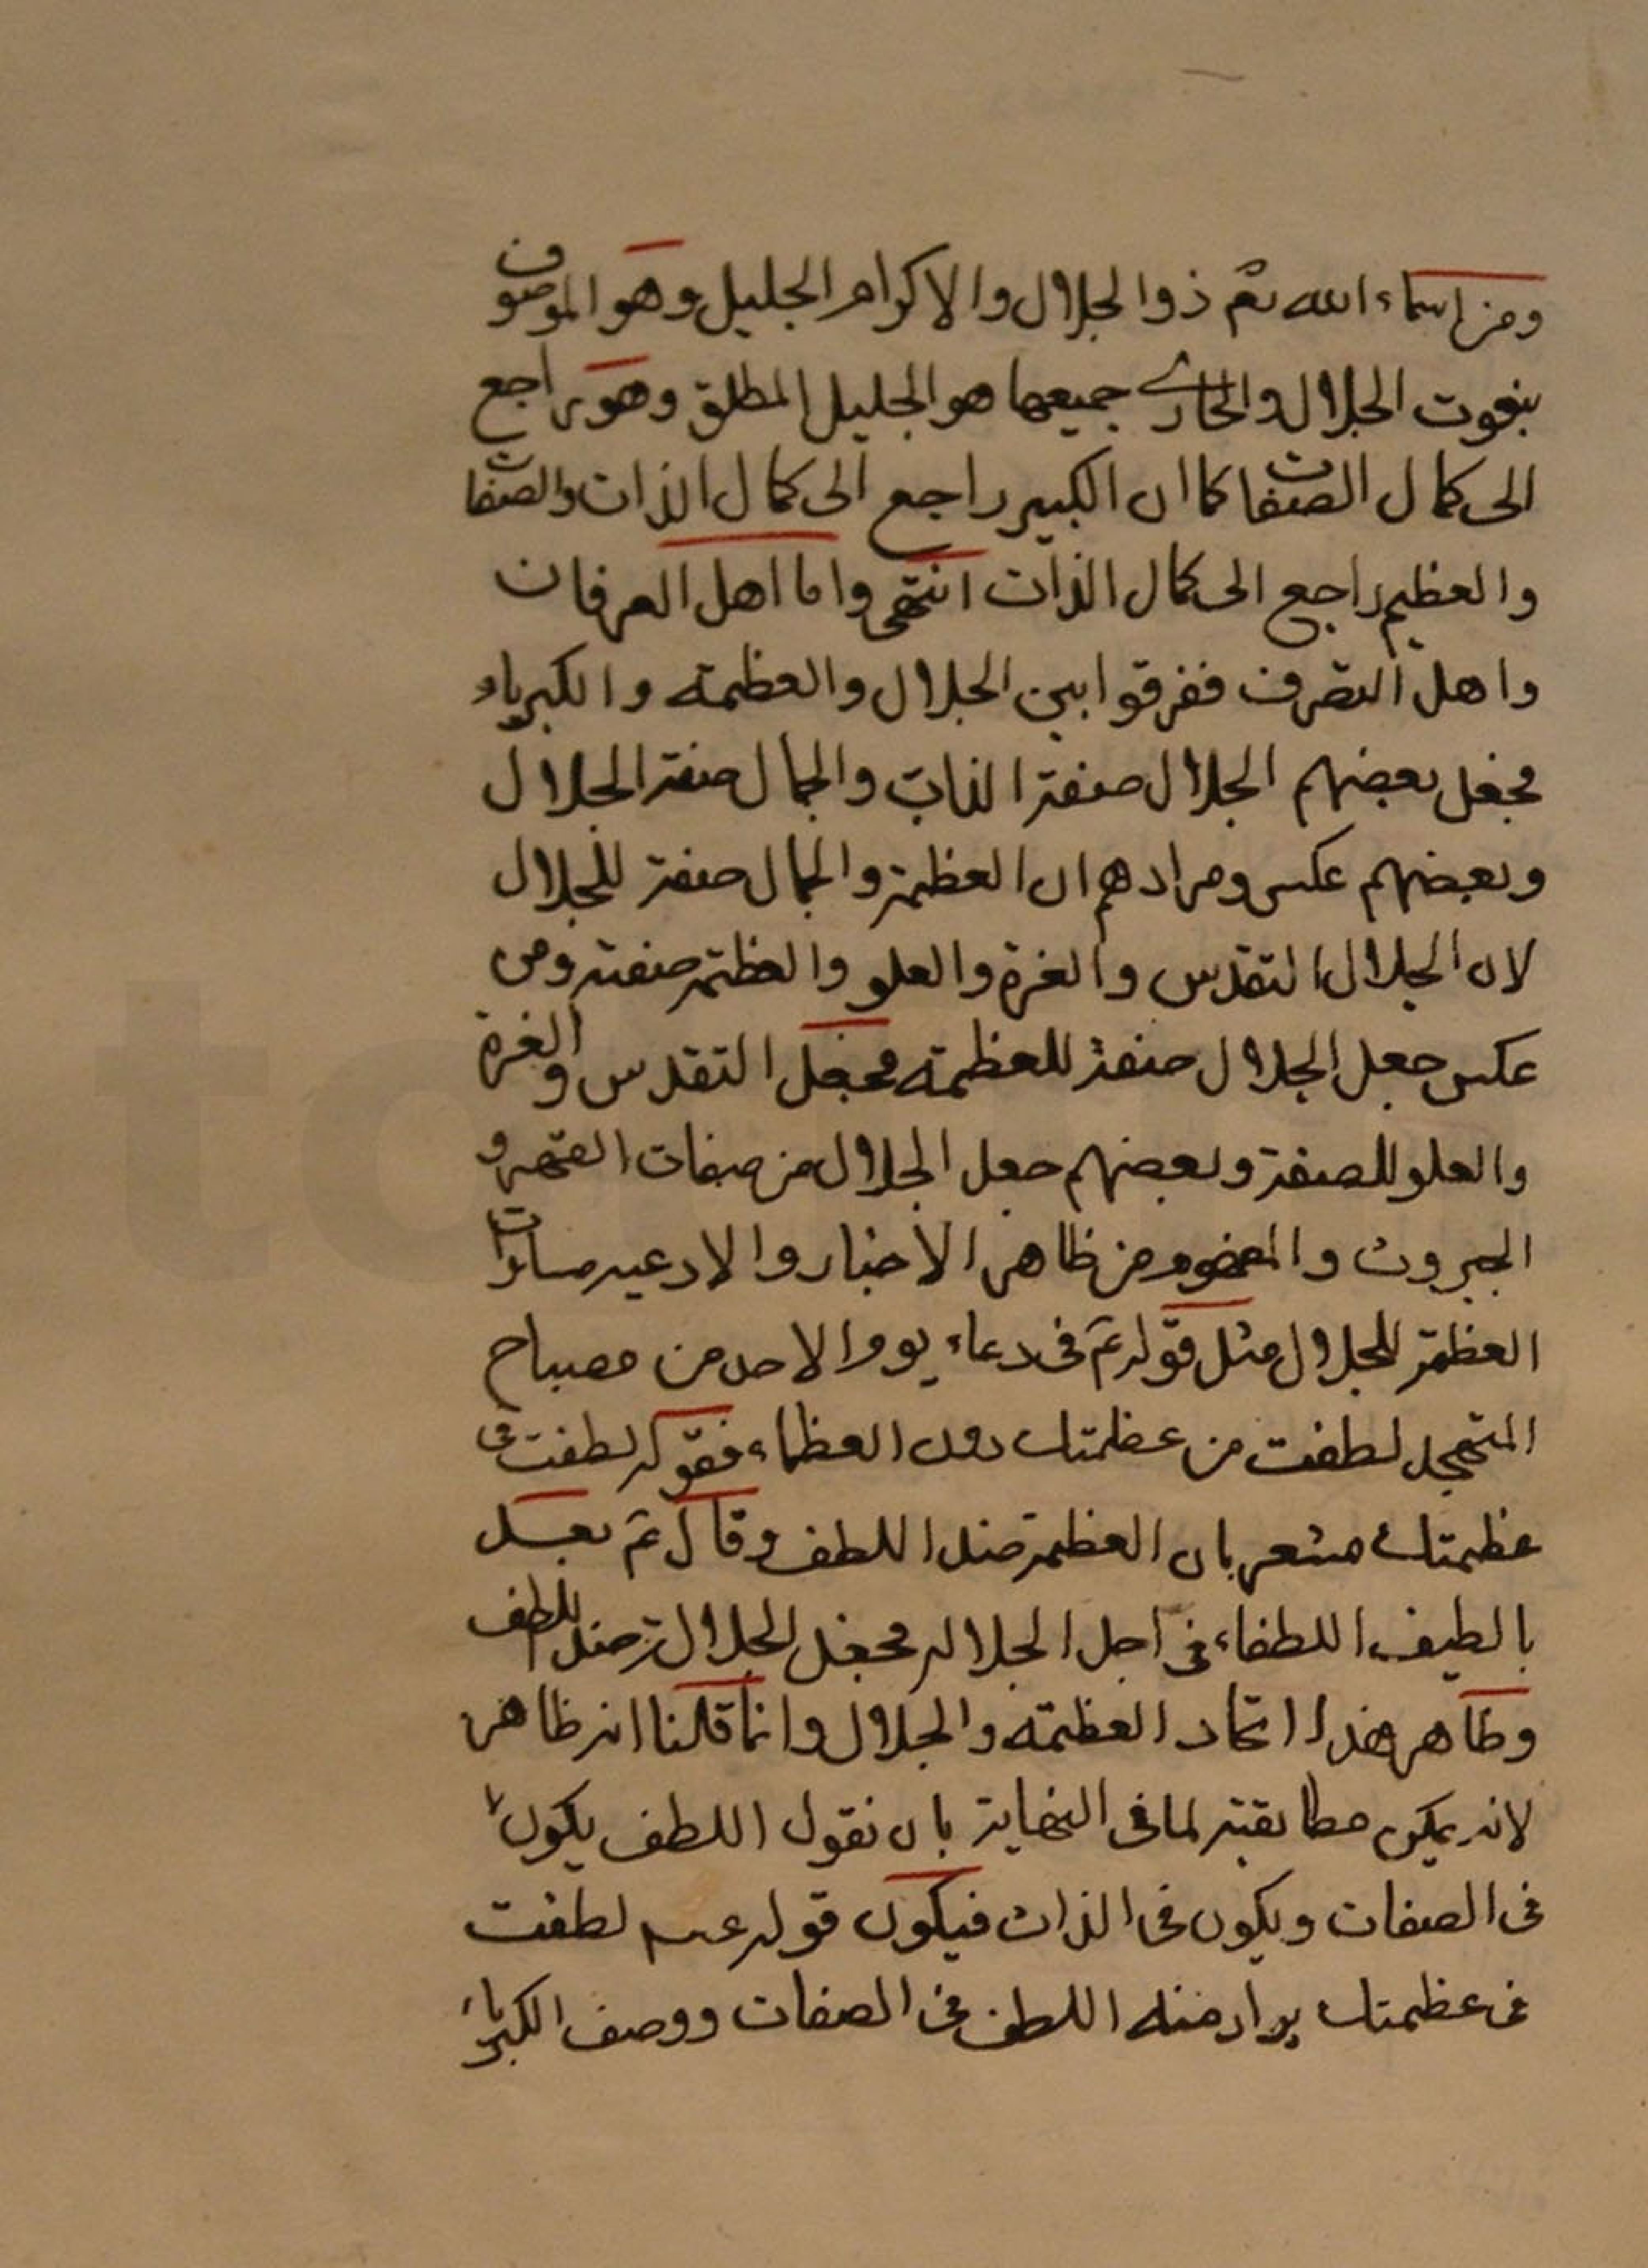 ومن اسماء الله تعم ذو الجلال والاكرام الجليل وهو الموصوف
بنعوت الجلال والحاوى جميعها هو الجليل المطلق وهو راجع
الى كمال الصفات كما ان الكبير راجع الى كمال الذات والصفات
والعظيم راجع الى كمال الذات انتهى واما اهل العرفان
واهل التصرف ففرقوا بين الجلال والعظمة والكبرياء
فجعل بعضهم الجلال صفة الذات والجمال صفة الجلال
وبعضهم عكس ومرادهم ان العظمة والجمال صفة للجلال
لان الجلال التقدس والعزة والعلو والعظمة صفته ومن
عكس جعل الجلال صفة للعظمة فجعل التقدس والعزة
والعلو للصفة وبعضهم جعل الجلال من صفات القهر و
الجبروت والعضو ومن ظاهر الاخبار والادعيه مساوات
العظمة للجلال مثل قوله ع في دعاء يوم الاحد من مصباح
المتهجد لطفت من عظمتك دون العظماء فقوله لطفت في
عظمتك مشعر بان العظمة ضد اللطف وقال ع بعد
يا لطيف اللطفاء في اجل الجلاله فجعل الجلالة ضد اللطف
وظاهر هذا اتحاد العظمة والجلال وانما قلنا انه ظاهر
لانه يمكن مطابقته لما في النهاية بان نقول اللطف يكون
في الصفات ويكون في الذات فيكون قوله عم لطفت
في عظمتك يراد منه اللطف في الصفات ووصف الكبرياء